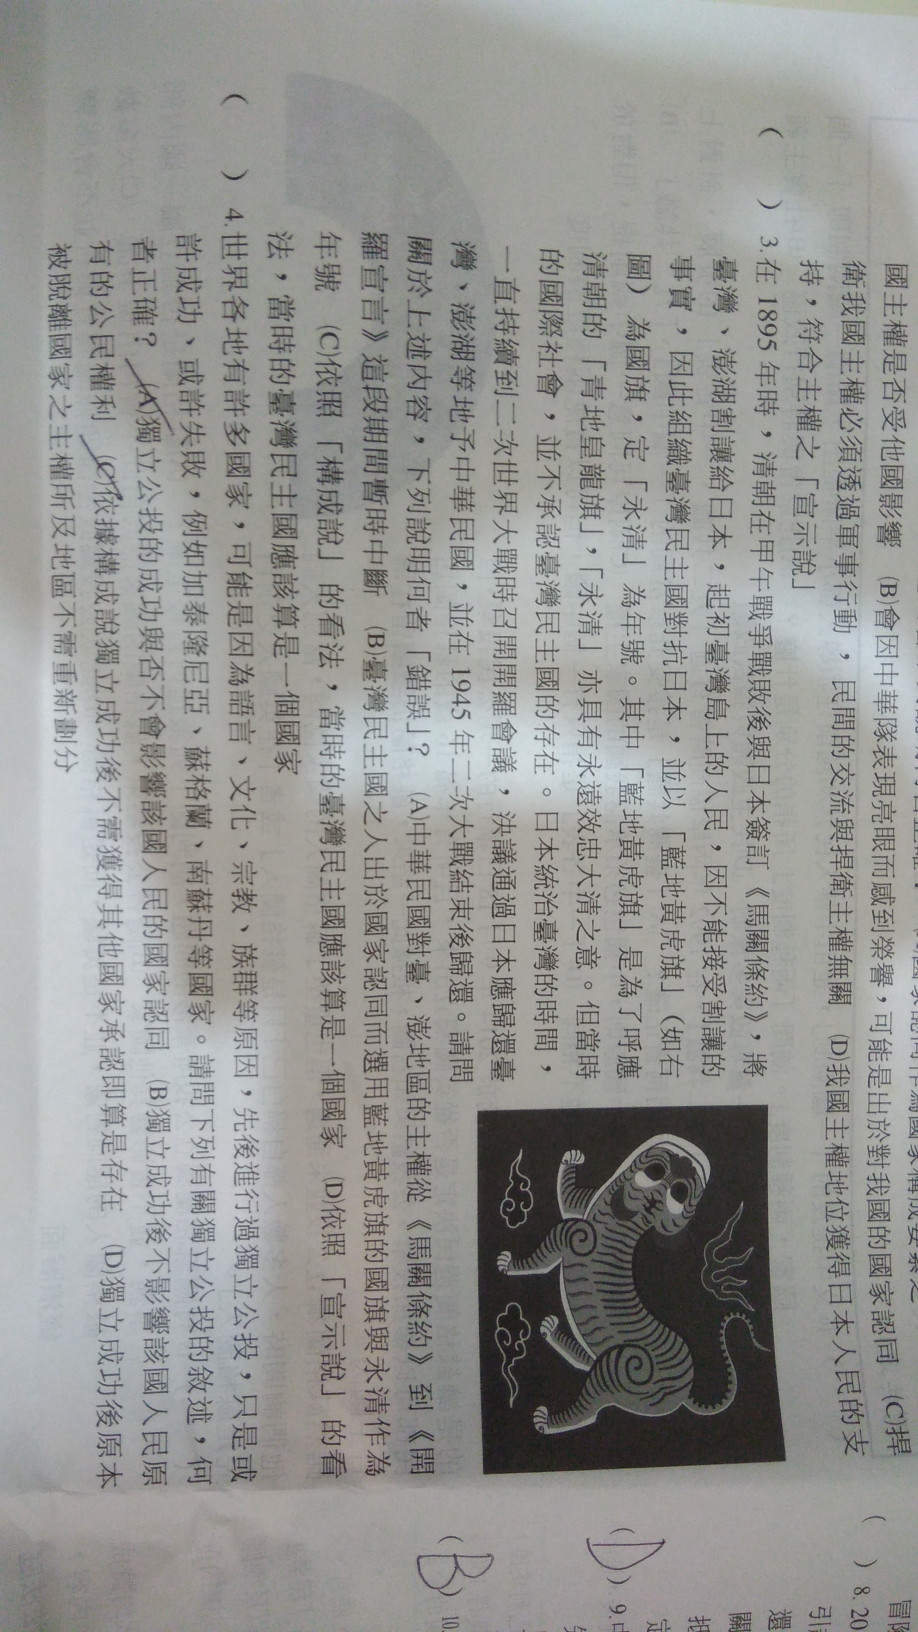 國主權是否受他國影響 (B)會因中華隊表現亮眼而感到榮譽，可能是出於對我國的國家認同 (C)捍
衛我國主權必須透過軍事行動，民間的交流與捍衛主權無關 (D)我國主權地位獲得日本人民的支
持，符合主權之「宣示說」
( ) 3.在 1895 年時，清朝在甲午戰爭戰敗後與日本簽訂《馬關條約》，將
臺灣、澎湖割讓給日本，起初臺灣島上的人民，因不能接受割讓的
事實，因此組織臺灣民主國對抗日本，並以「藍地黃虎旗」（如右
圖）為國旗，定「永清」為年號。其中「藍地黃虎旗」是為了呼應
清朝的「青地皇龍旗」，「永清」亦具有永遠效忠大清之意。但當時
的國際社會，並不承認臺灣民主國的存在。日本統治臺灣的時間，
一直持續到二次世界大戰時召開開羅會議，決議通過日本應歸還臺
灣、澎湖等地予中華民國，並在 1945 年二次大戰結束後歸還。請問
關於上述內容，下列說明何者「錯誤」？ (A)中華民國對臺、澎地區的主權從《馬關條約》到《開
羅宣言》這段期間暫時中斷 (B)臺灣民主國之人出於國家認同而選用藍地黃虎旗的國旗與永清作為
年號 (C)依照「構成說」的看法，當時的臺灣民主國應該算是一個國家 (D)依照「宣示說」的看
法，當時的臺灣民主國應該算是一個國家
( ) 4.世界各地有許多國家，可能是因為語言、文化、宗教、族群等原因，先後進行過獨立公投，只是或
許成功、或許失敗，例如加泰隆尼亞、蘇格蘭、南蘇丹等國家。請問下列有關獨立公投的敘述，何
者正確？ (A)獨立公投的成功與否不會影響該國人民的國家認同 (B)獨立成功後不影響該國人民原
有的公民權利 (C)依據構成說獨立成功後不需獲得其他國家承認即算是存在 (D)獨立成功後原本
被脫離國家之主權所及地區不需重新劃分
( ) 8. 20
引
還
(D) 9.
定
(B) 10.